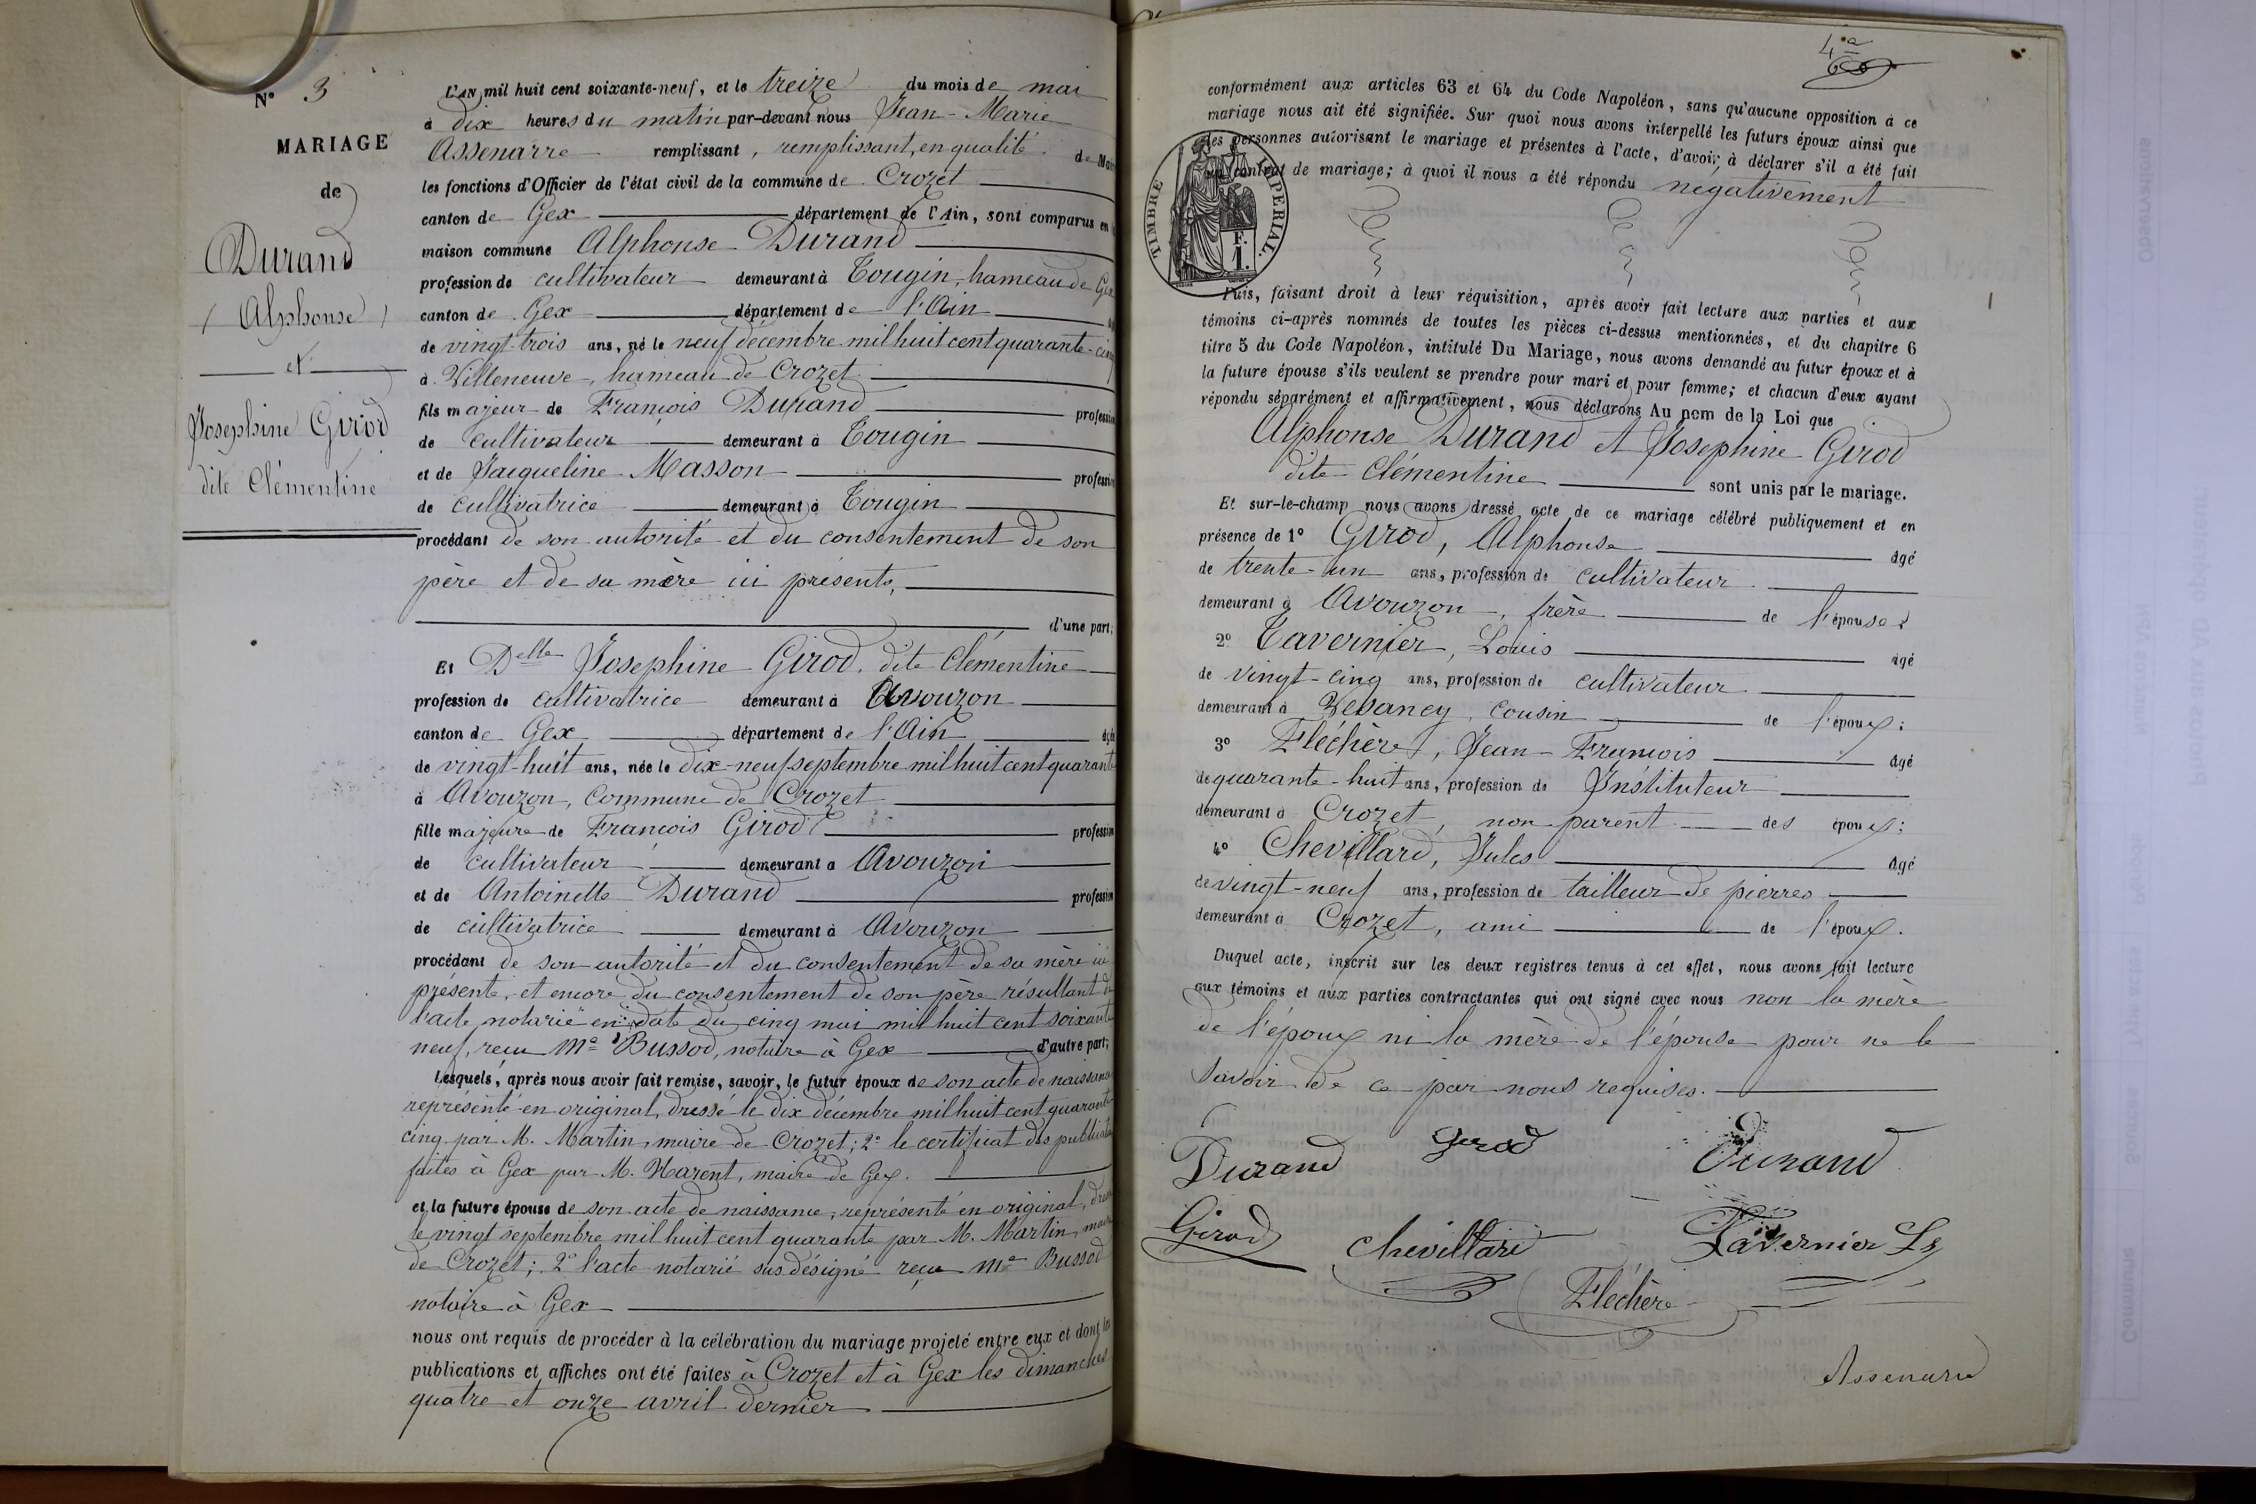 N° 3
MARIAGE
de
Durand
Alphonse
et
Josephine Girod
dite Clémentine
L'AN mil huit cent soixante-neuf, et le treize du mois de mai
à dix heures du matin par-devant nous Jean-Marie
Assenarre remplissant, remplissant, en qualité de Maire
les fonctions d'Officier de l'état civil de la commune de Crozet
canton de Gex département de l'Ain, sont comparus en
maison commune Alphonse Durand
profession de cultivateur demeurant à Tougin, hameau de Gex
canton de Gex département de l'Ain
de vingt-trois ans, né le neuf décembre mil huit cent quarante-cinq
à Villeneuve, hameau de Crozet
fils majeur de François Durand profession
de cultivateur demeurant à Tougin
et de Jacqueline Masson profession
de cultivatrice demeurant à Tougin
procédant de son autorité et du consentement de son
père et de sa mère ici présents,
d'une part;
Et Delle Josephine Girod, dite Clémentine
profession de cultivatrice demeurant à Avouzon
canton de Gex département de l'Ain âgée
de vingt-huit ans, née le dix-neuf septembre mil huit cent quarante
à Avouzon, commune de Crozet
fille majeure de François Girod profession
de cultivateur demeurant à Avouzon
et de Antoinette Durand profession
de cultivatrice demeurant à Avouzon
procédant de son autorité et du consentement de sa mère ici
présente, et encore du consentement de son père résultant de
l'acte notarié en date du cinq mai mil huit cent soixante
neuf, reçu Me Bussod, notaire à Gex d'autre part;
Lesquels, après nous avoir fait remise, savoir, le futur époux de son acte de naissance
représenté en original, dressé le dix décembre mil huit cent quarante
cinq par M. Martin, maire de Crozet; 2° le certificat des publications
faites à Gex par M. Harent, maire de Gex.
et la future épouse de son acte de naissance, représenté en original, dressé
le vingt septembre mil huit cent quarante par M. Martin, maire
de Crozet; 2° l'acte notarié sus désigné reçu Me Bussod
notaire à Gex
nous ont requis de procéder à la célébration du mariage projeté entre eux et dont les
publications et affiches ont été faites à Crozet et à Gex les dimanches
quatre et onze avril dernier
4 a
conformément aux articles 63 et 64 du Code Napoléon, sans qu'aucune opposition à ce
mariage nous ait été signifiée. Sur quoi nous avons interpellé les futurs époux ainsi que
les personnes autorisant le mariage et présentes à l'acte, d'avoir à déclarer s'il a été fait
un contrat de mariage; à quoi il nous a été répondu négativement
TIMBRE IMPERIAL.
F.
1.
Puis, faisant droit à leur réquisition, après avoir fait lecture aux parties et aux
témoins ci-après nommés de toutes les pièces ci-dessus mentionnées, et du chapitre 6
titre 5 du Code Napoléon, intitulé Du Mariage, nous avons demandé au futur époux et à
la future épouse s'ils veulent se prendre pour mari et pour femme; et chacun d'eux ayant
répondu séparément et affirmativement, nous déclarons Au nom de la Loi que
Alphonse Durand et Josephine Girod
dite Clémentine sont unis par le mariage.
Et sur-le-champ nous avons dressé acte de ce mariage célébré publiquement et en
présence de 1° Girod, Alphonse âgé
de trente-un ans, profession de cultivateur
demeurant à Avouzon, frère de l'épouse;
2° Tavernier, Louis âgé
de vingt-cinq ans, profession de cultivateur
demeurant à Vesancy, cousin de l'époux;
3° Fléchère, Jean-François âgé
de quarante-huit ans, profession de Instituteur
demeurant à Crozet, non parent des époux;
4° Chevillard, Jules âgé
de vingt-neuf ans, profession de tailleur de pierres
demeurant à Crozet, ami de l'époux.
Duquel acte, inscrit sur les deux registres tenus à cet effet, nous avons fait lecture
aux témoins et aux parties contractantes qui ont signé avec nous non la mère
de l'époux ni la mère de l'épouse pour ne le
savoir de ce par nous requises.
Durand Girod Durand
Girod Chevillard Tavernier Ls
Fléchère
Assenarre